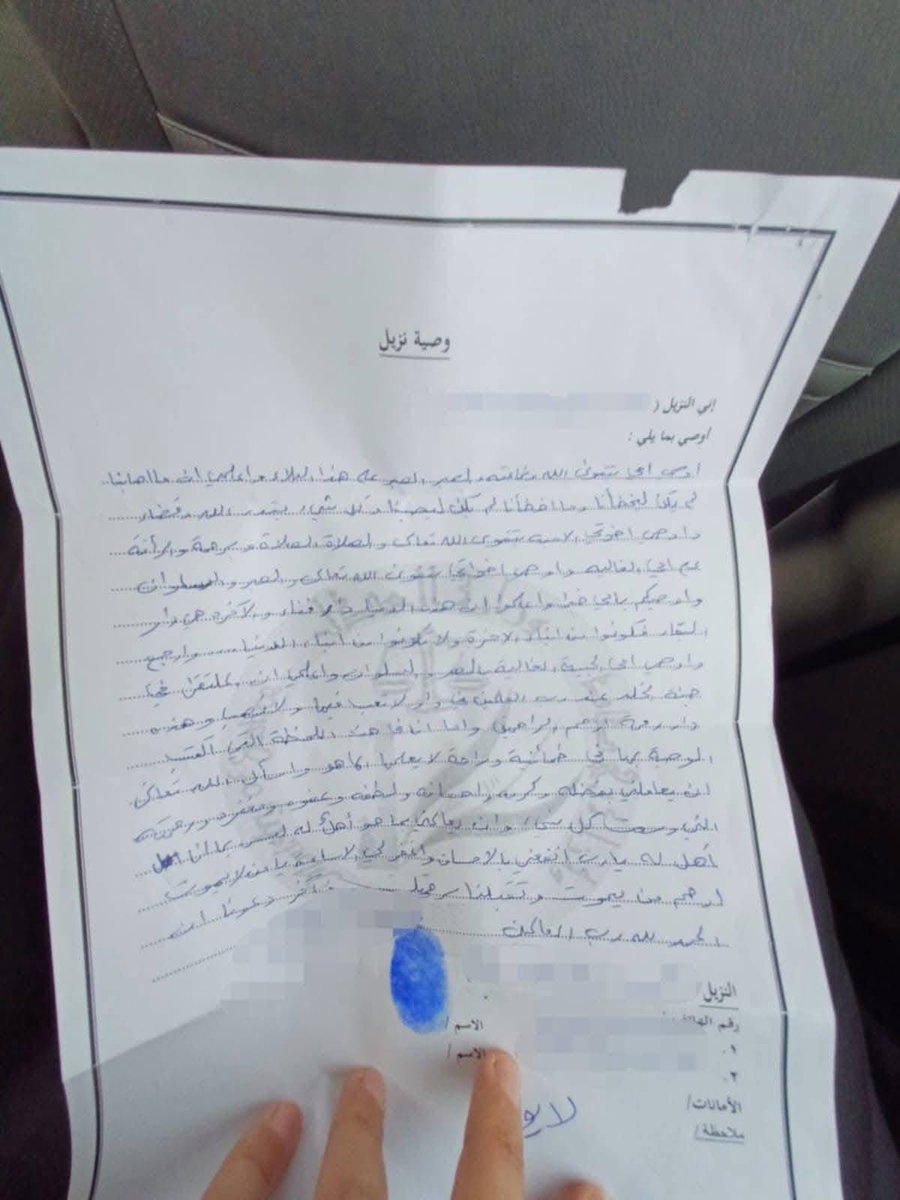 وصية نزيل
إني النزيل (
أوصي بما يلي :
أوصي امي بتقوى الله وطاعته والصبر الصبر على هذا البلاء واعلمي ان ما اصابنا
لم يكن ليخطأنا وما اخطأنا لم يكن ليصيبنا وكل شيء بقدر الله وقضاء
واوصي اخوتي بتقوى الله تعالى والصلاة الصلاة والرأفة
امي الغالية واوصي اخواتي بتقوى الله تعالى والصبر والسلوان
واوصيكم واعلموا ان هذه الدنيا دار فناء والاخرة هي دار
البقاء فكونوا من ابناء الاخرة ولا تكونوا من ابناء الدنيا
واوصي امي الحبيبة الغالية بالصبر والسلوان واعلمي ان الملتقى في
جنة الخلد عند رب العالمين لا تعب فيها ولا وهذه
دار رحمة ارحم الراحمين وانا في هذه اللحظة التي اكتب
الوصية بها في طمأنينة وراحة لا يعلمها الا هو واسأل الله تعالى
ان يعاملني بفضله وكرمه واحسانه ولطفه وعفوه ومغفرته ورحمته
التي وسعت كل شيء وان يعاملني بما هو أهل له ليس بما أنا أهل
أهل له يا رب اتحفني بالاحسان واغفر لي الاساءة يا من لا يموت
ارحم من يموت وتقبلنا برحمتك وآخر دعوانا ان
الحمد لله رب العالمين
النزيل
رقم الهاتف
١. الاسم /
٢. الاسم /
الأمانات/
ملاحظة /